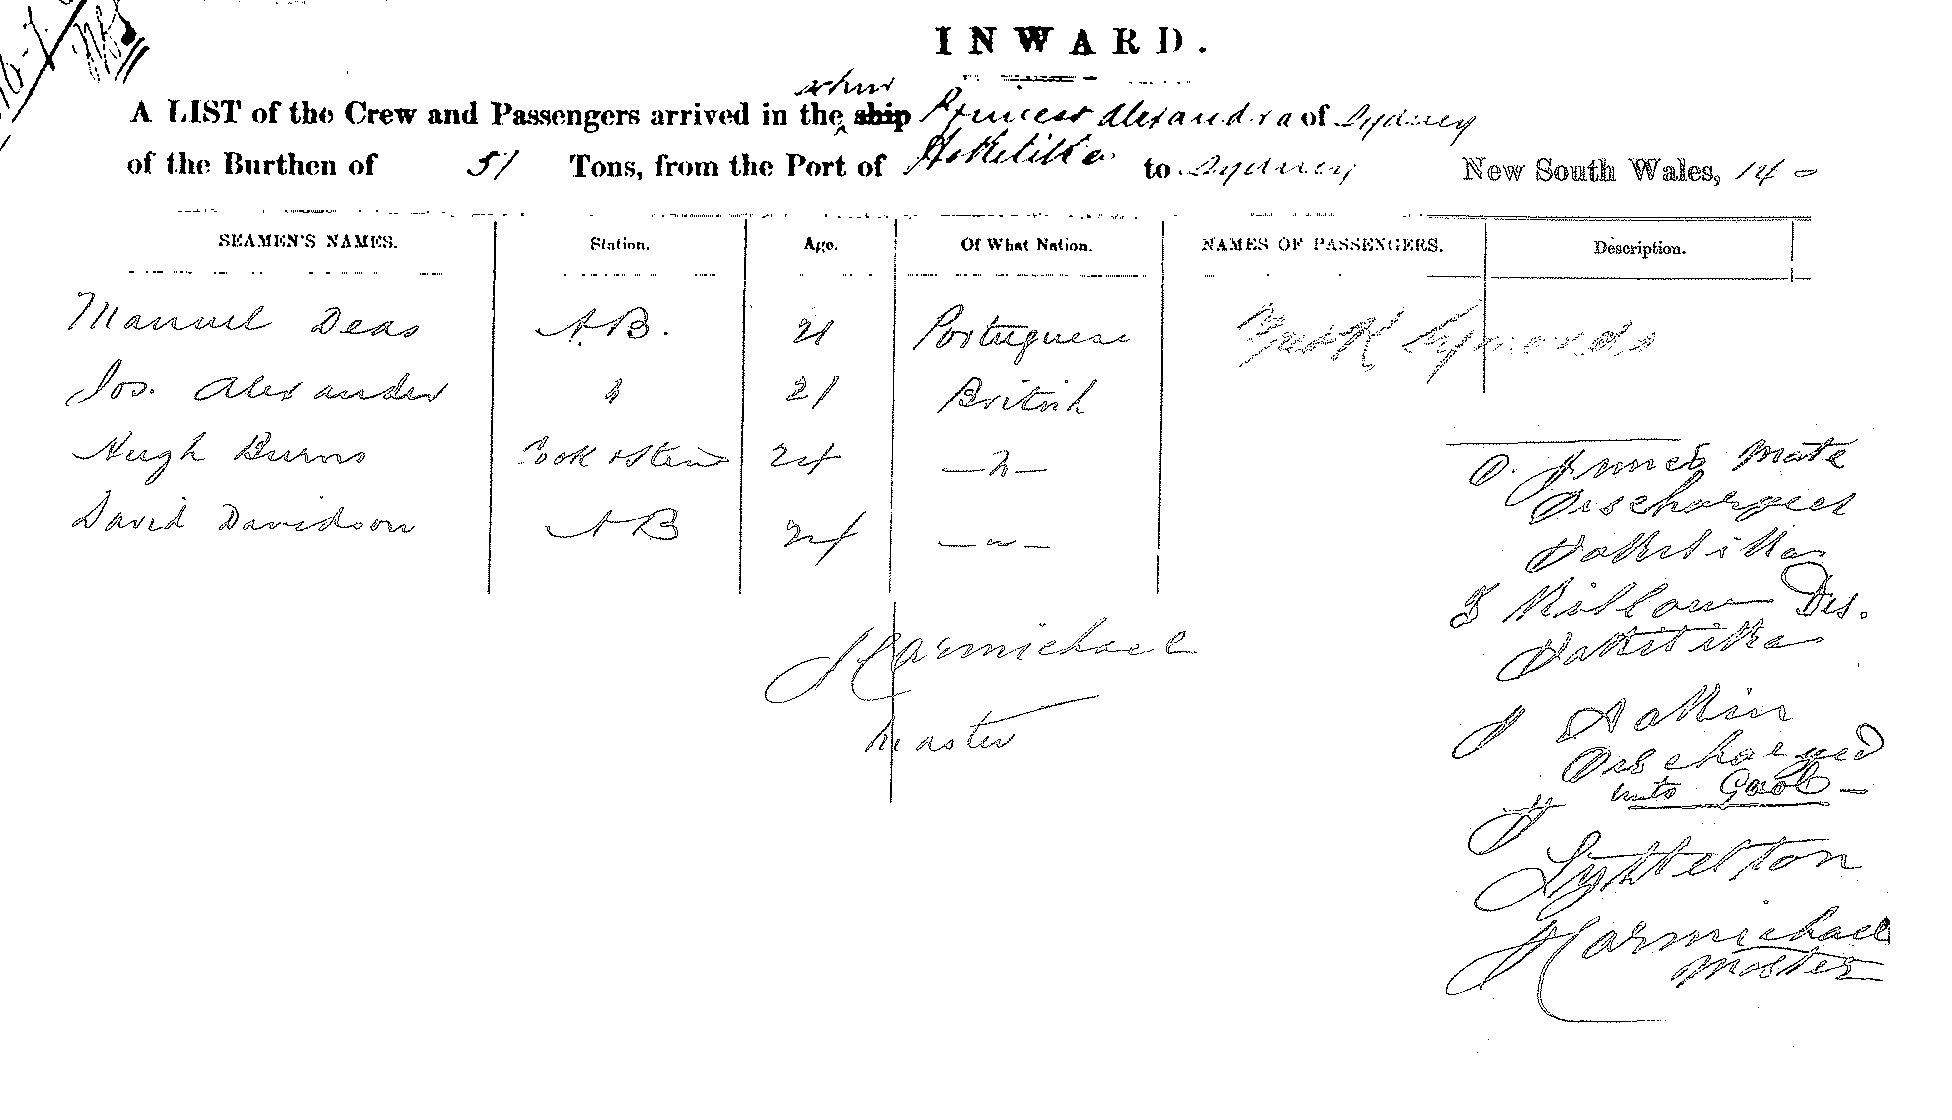 INWARD.
schnr
A LIST of the Crew and Passengers arrived in the ship Princess Alexandra of Sydney
of the Burthen of 51 Tons, from the Port of Hokitika to Sydney New South Wales, 14
SEAMEN'S NAMES. Station. Age. Of What Nation. NAMES OF PASSENGERS. Description.
Manuel Deas A.B. 21 Portuguese Fredk Symonds
Jos. Alexander " 21 British
Hugh Burns Cook & Stew 24 — " —
David Davidson A B 24 — " —
Mate
Discharged
Hokitika
Dis.
Hokitika
J Carmichael
master
Discharged
into Gaol —
Lyttelton
J Carmichael
master